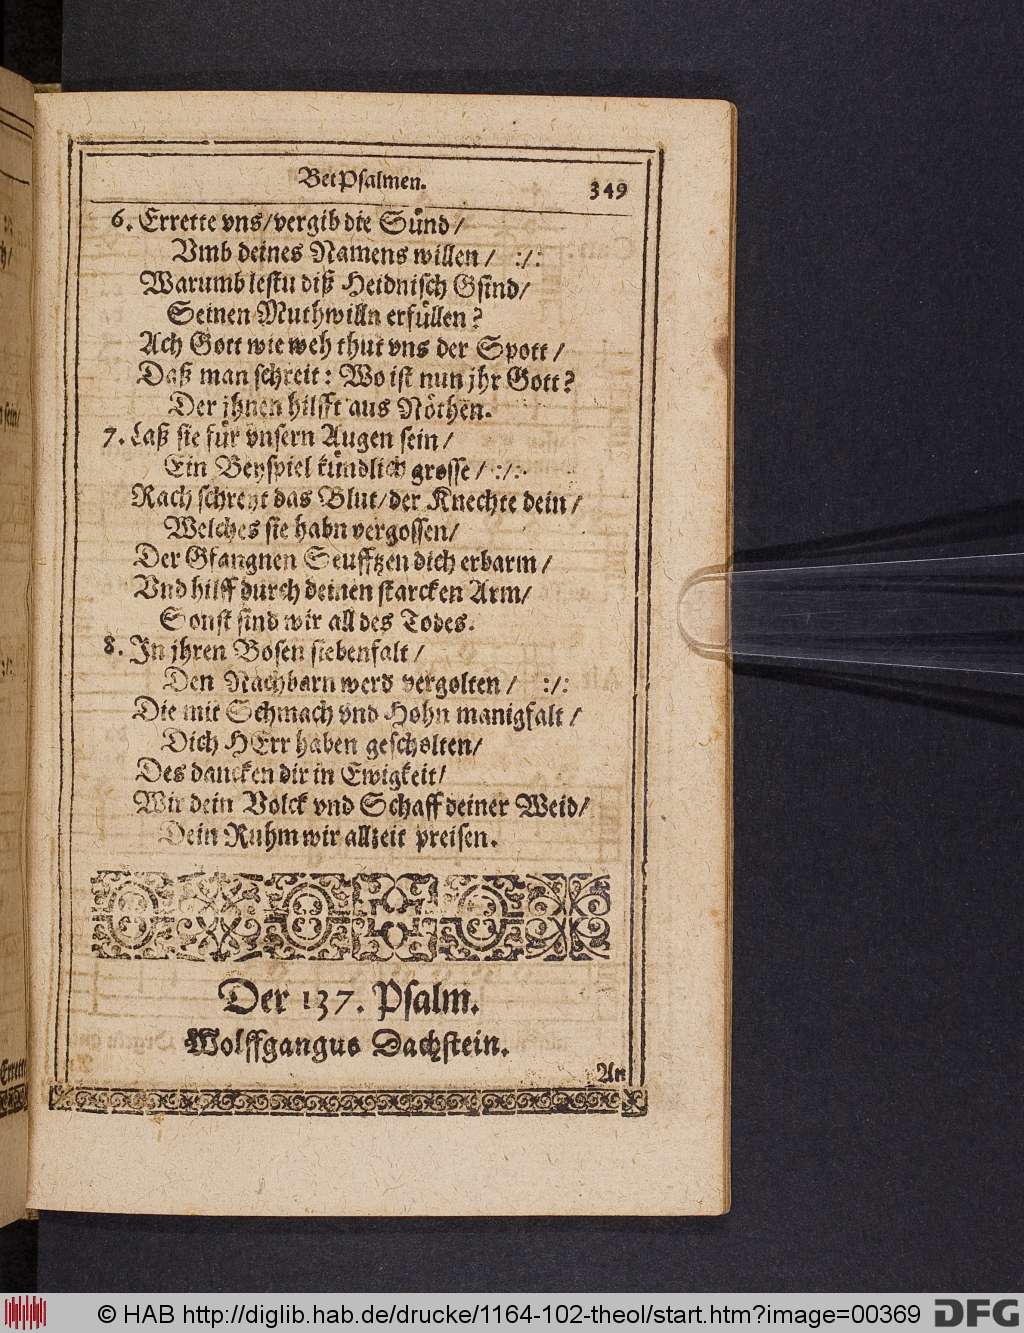 BetPsalmen.
349
6. Errette vns/vergib die Sünd/
Vmb deines Namens willen/ :/:
Warumb lestu diß Heidnisch Gsind/
Seinen Muthwilln erfüllen?
Ach Gott wie weh thut vns der Spott/
Daß man schreit: Wo ist nun jhr Gott?
Der jhnen hilfft aus Nöthen.
7. Laß sie für vnsern Augen sein/
Ein Beyspiel kündlich grosse/ :/:
Rach schreyt das Blut/der Knechte dein/
Welches sie habn vergossen/
Der Gfangnen Seufftzen dich erbarm/
Vnd hilff durch deinen starcken Arm/
Sonst sind wir all des Todes.
8. In jhren Bosen siebenfalt/
Den Nachbarn werd vergolten/ :/:
Die mit Schmach vnd Hohn manigfalt/
Dich HErr haben gescholten/
Des dancken dir in Ewigkeit/
Wir dein Volck vnd Schaff deiner Weid/
Dein Ruhm wir allzeit preisen.
Der 137. Psalm.
Wolffgangus Dachstein.
An
© HAB http://diglib.hab.de/drucke/1164-102-theol/start.htm?image=00369
DFG